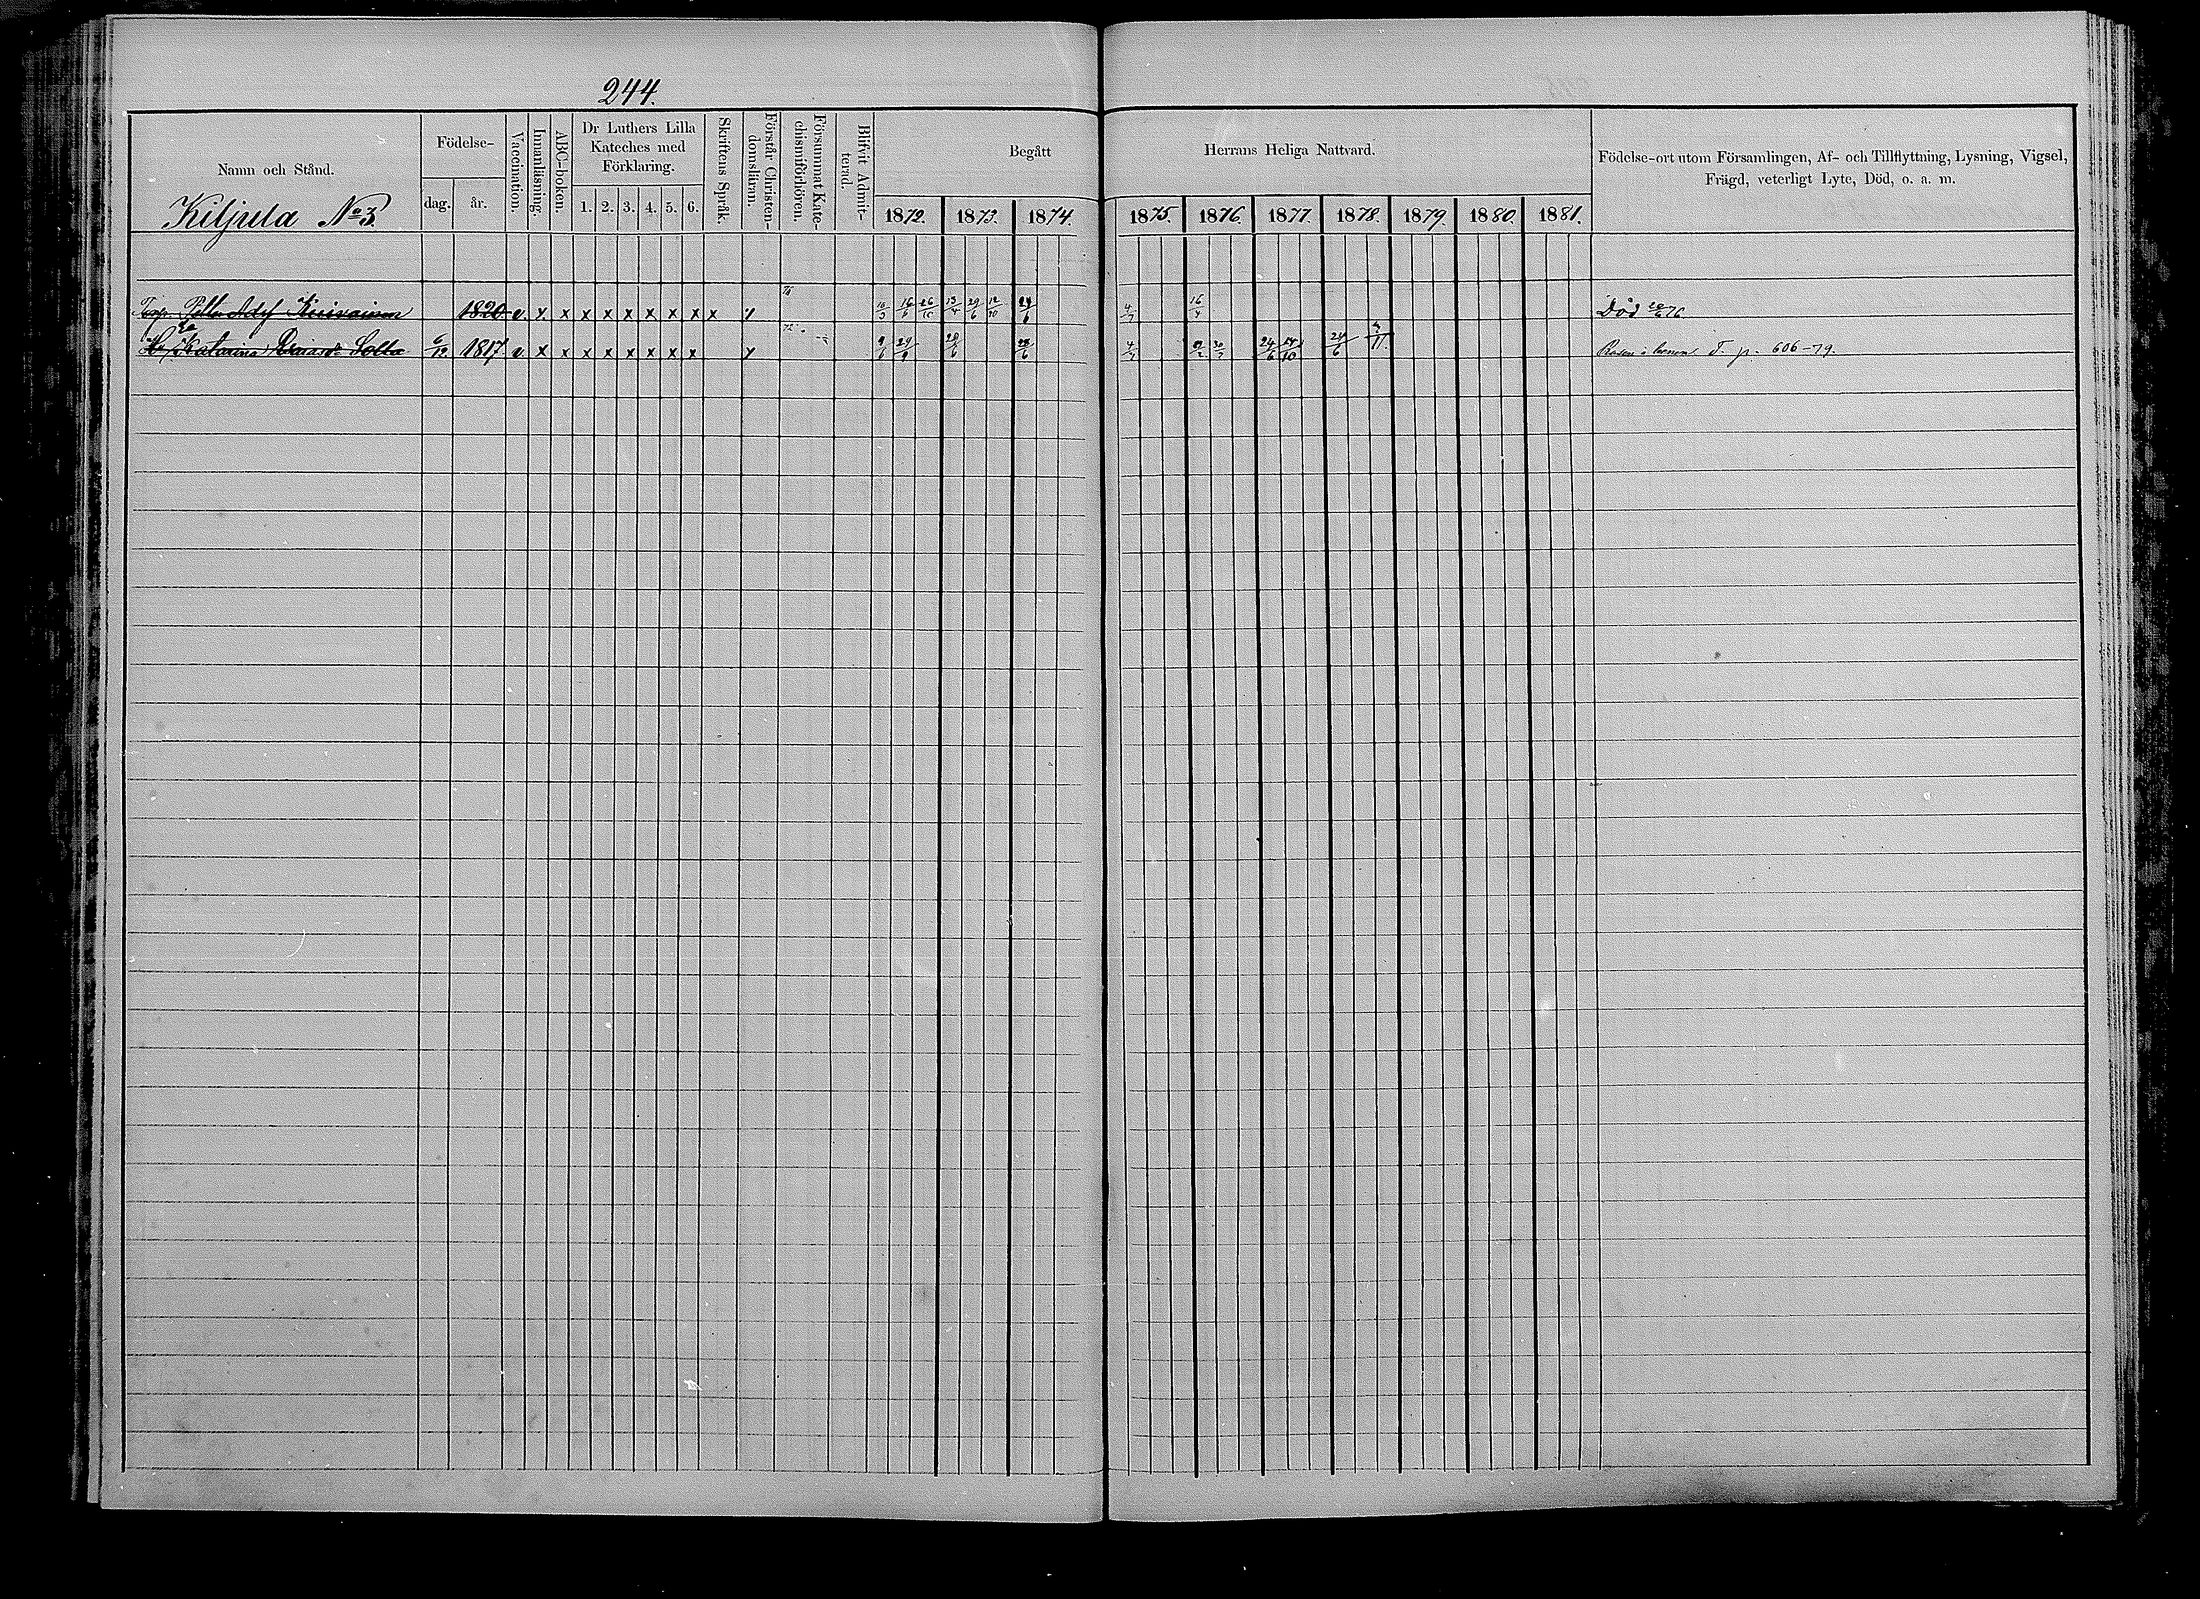 244.
Namn och Stånd.
Födelse-
dag.
år.
Vaccination.
Innanläsning.
ABC-boken.
Dr Luthers Lilla
Kateches med
Förklaring.
1. 2. 3. 4. 5. 6.
Skriftens Språk.
Förstår Christen-
domsläran.
Försummat Kate-
chismiförhören.
Blifvit Admit-
terad.
Begått
Herrans Heliga Nattvard.
1872. 1873. 1874.
1875. 1876. 1877. 1878. 1879. 1880 1881.
Födelse-ort utom Församlingen, Af- och Tillflyttning, Lysning, Vigsel,
Frägd, veterligt Lyte, Död, o. a. m.
Kiljula No 3.
1820 v. x x x x x x x x x 16/6 26/10 13/4 29/6 12/10 4/7 16/4 Död
Katarina 1817 v x x x x x x x x 29/9 4/7 24/6 24/6 T. p. 606-79.